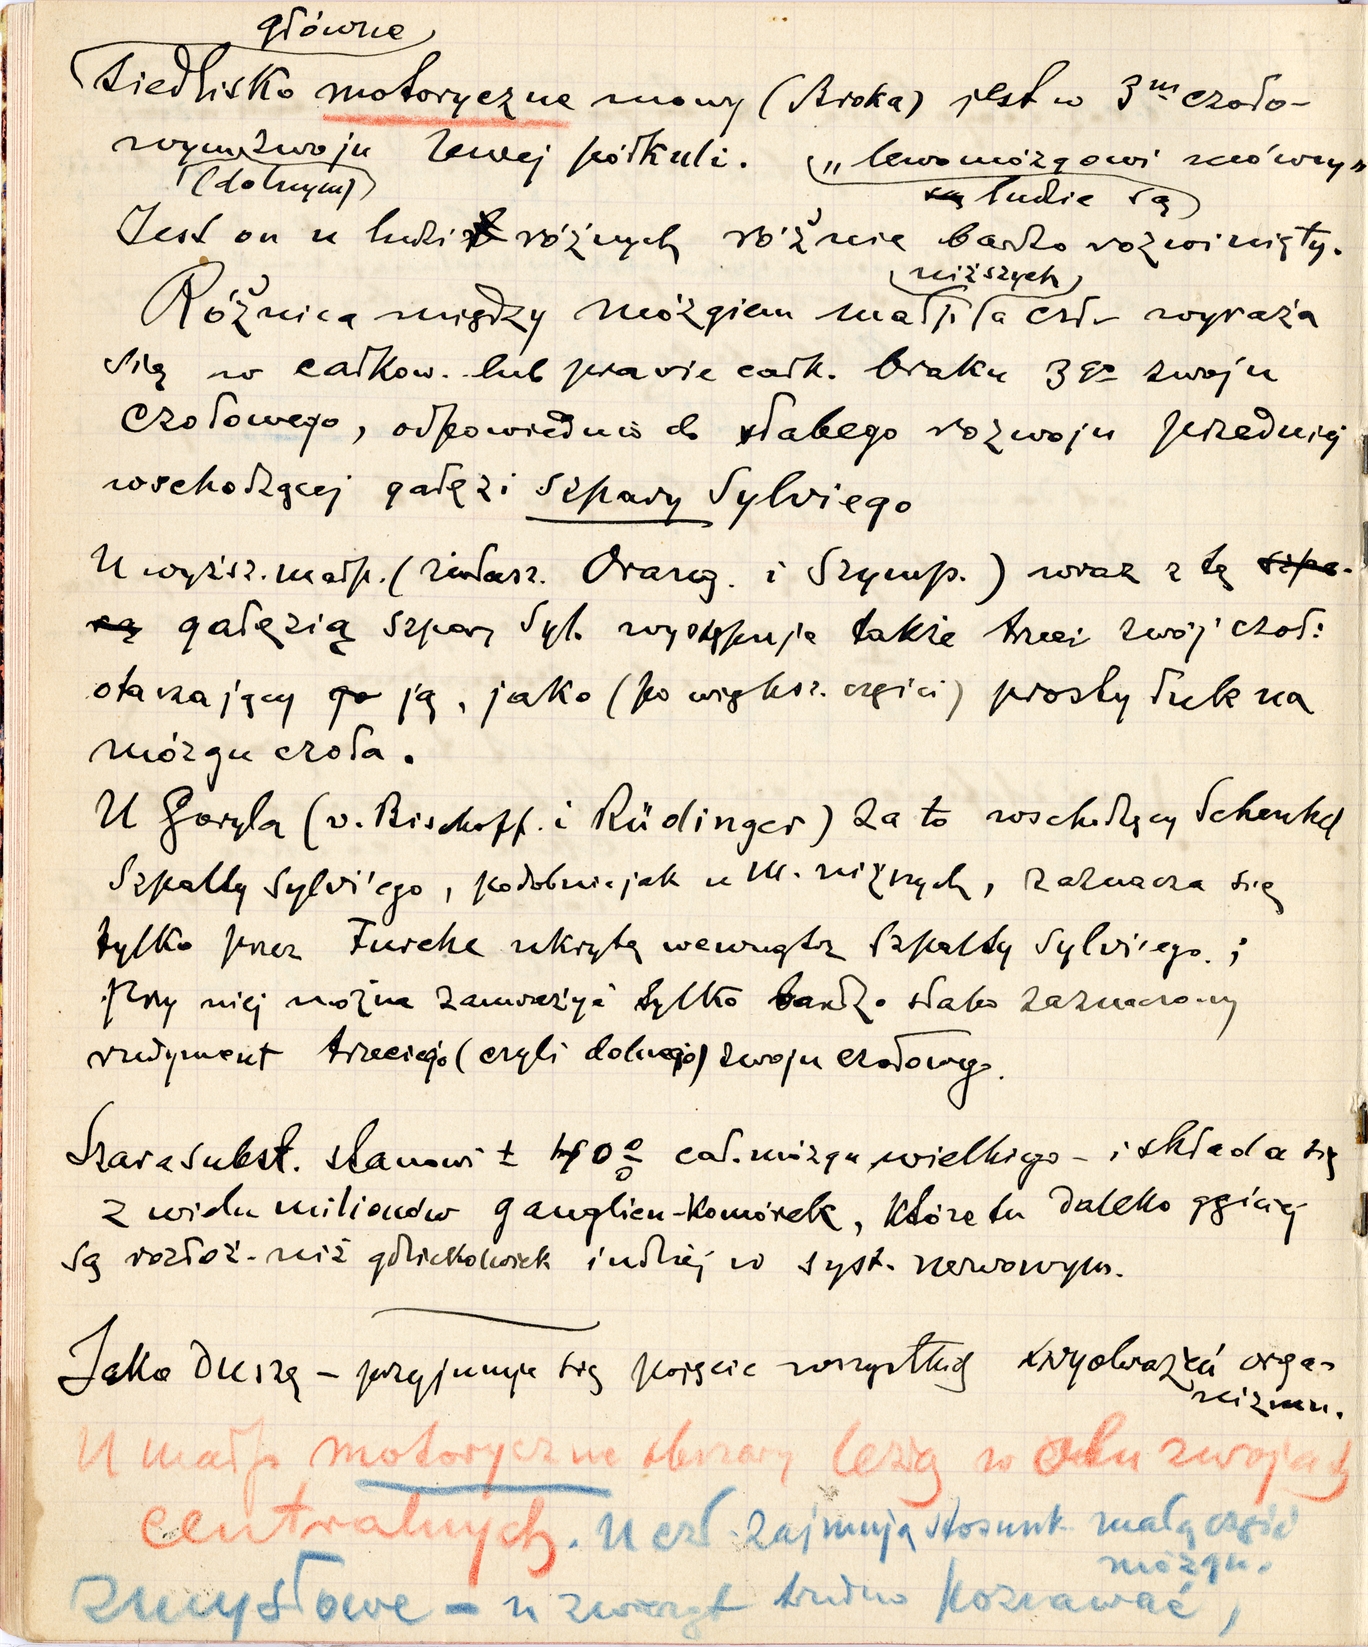 główne
Siedlisko motoryczne mowy (Broka) jest w 3m czoło-
wym zwoju lewej półkuli. „lewomózgowi mówny"
(dolnym) ludzie są
Jest on u ludzi różnych różnie bardzo rozwinięty.
niższych
Różnica między mózgiem małp i a czł. wyraża
się w całkow. lub prawie całk. braku 3go zwoju
czołowego, odpowiednio do słabego rozwoju przedniej
wschodzącej gałęzi szpary Sylviego
U wyższ. małp. (zwłasz. Orang. i Szymp.) wraz z tą szpa-
rą gałęzią szpary Syl. występuje także trzeci zwój czoł:
otaczający go ją, jako (po większ. części) prosty łuk na
mózgu czoła.
U Goryla (v. Bischoff. i Rüdinger) za to wschodzący Schenkel
Szpalty Sylvi'ego, podobnie jak u m. niżnych, zaznacza się
tylko przez Furche ukrytą wewnątrz Szpalty Sylvi'ego. ;
Przy niej można zauważyć tylko bardzo słabo zaznaczony
rudyment trzeciego (czyli dolnego) zwoju czołowego.
Szara subst. stanowi ± 40% cał. mózgu wielkiego – i składa się
z wielu milionów ganglien-komórek, które tu daleko gęściej
są rozłoż. niż gdziekolwiek indziej w syst. nerwowym.
Jako Duszę – przyjmuje się pojęcie wszystkich wyobrażeń orga-
nizmu.
U małp motoryczne obszary leżą w obu zwojach
centralnych. U czł. zajmują stosunk. małą część
mózgu.
zmysłowe – u zwierząt trudno poznawać,